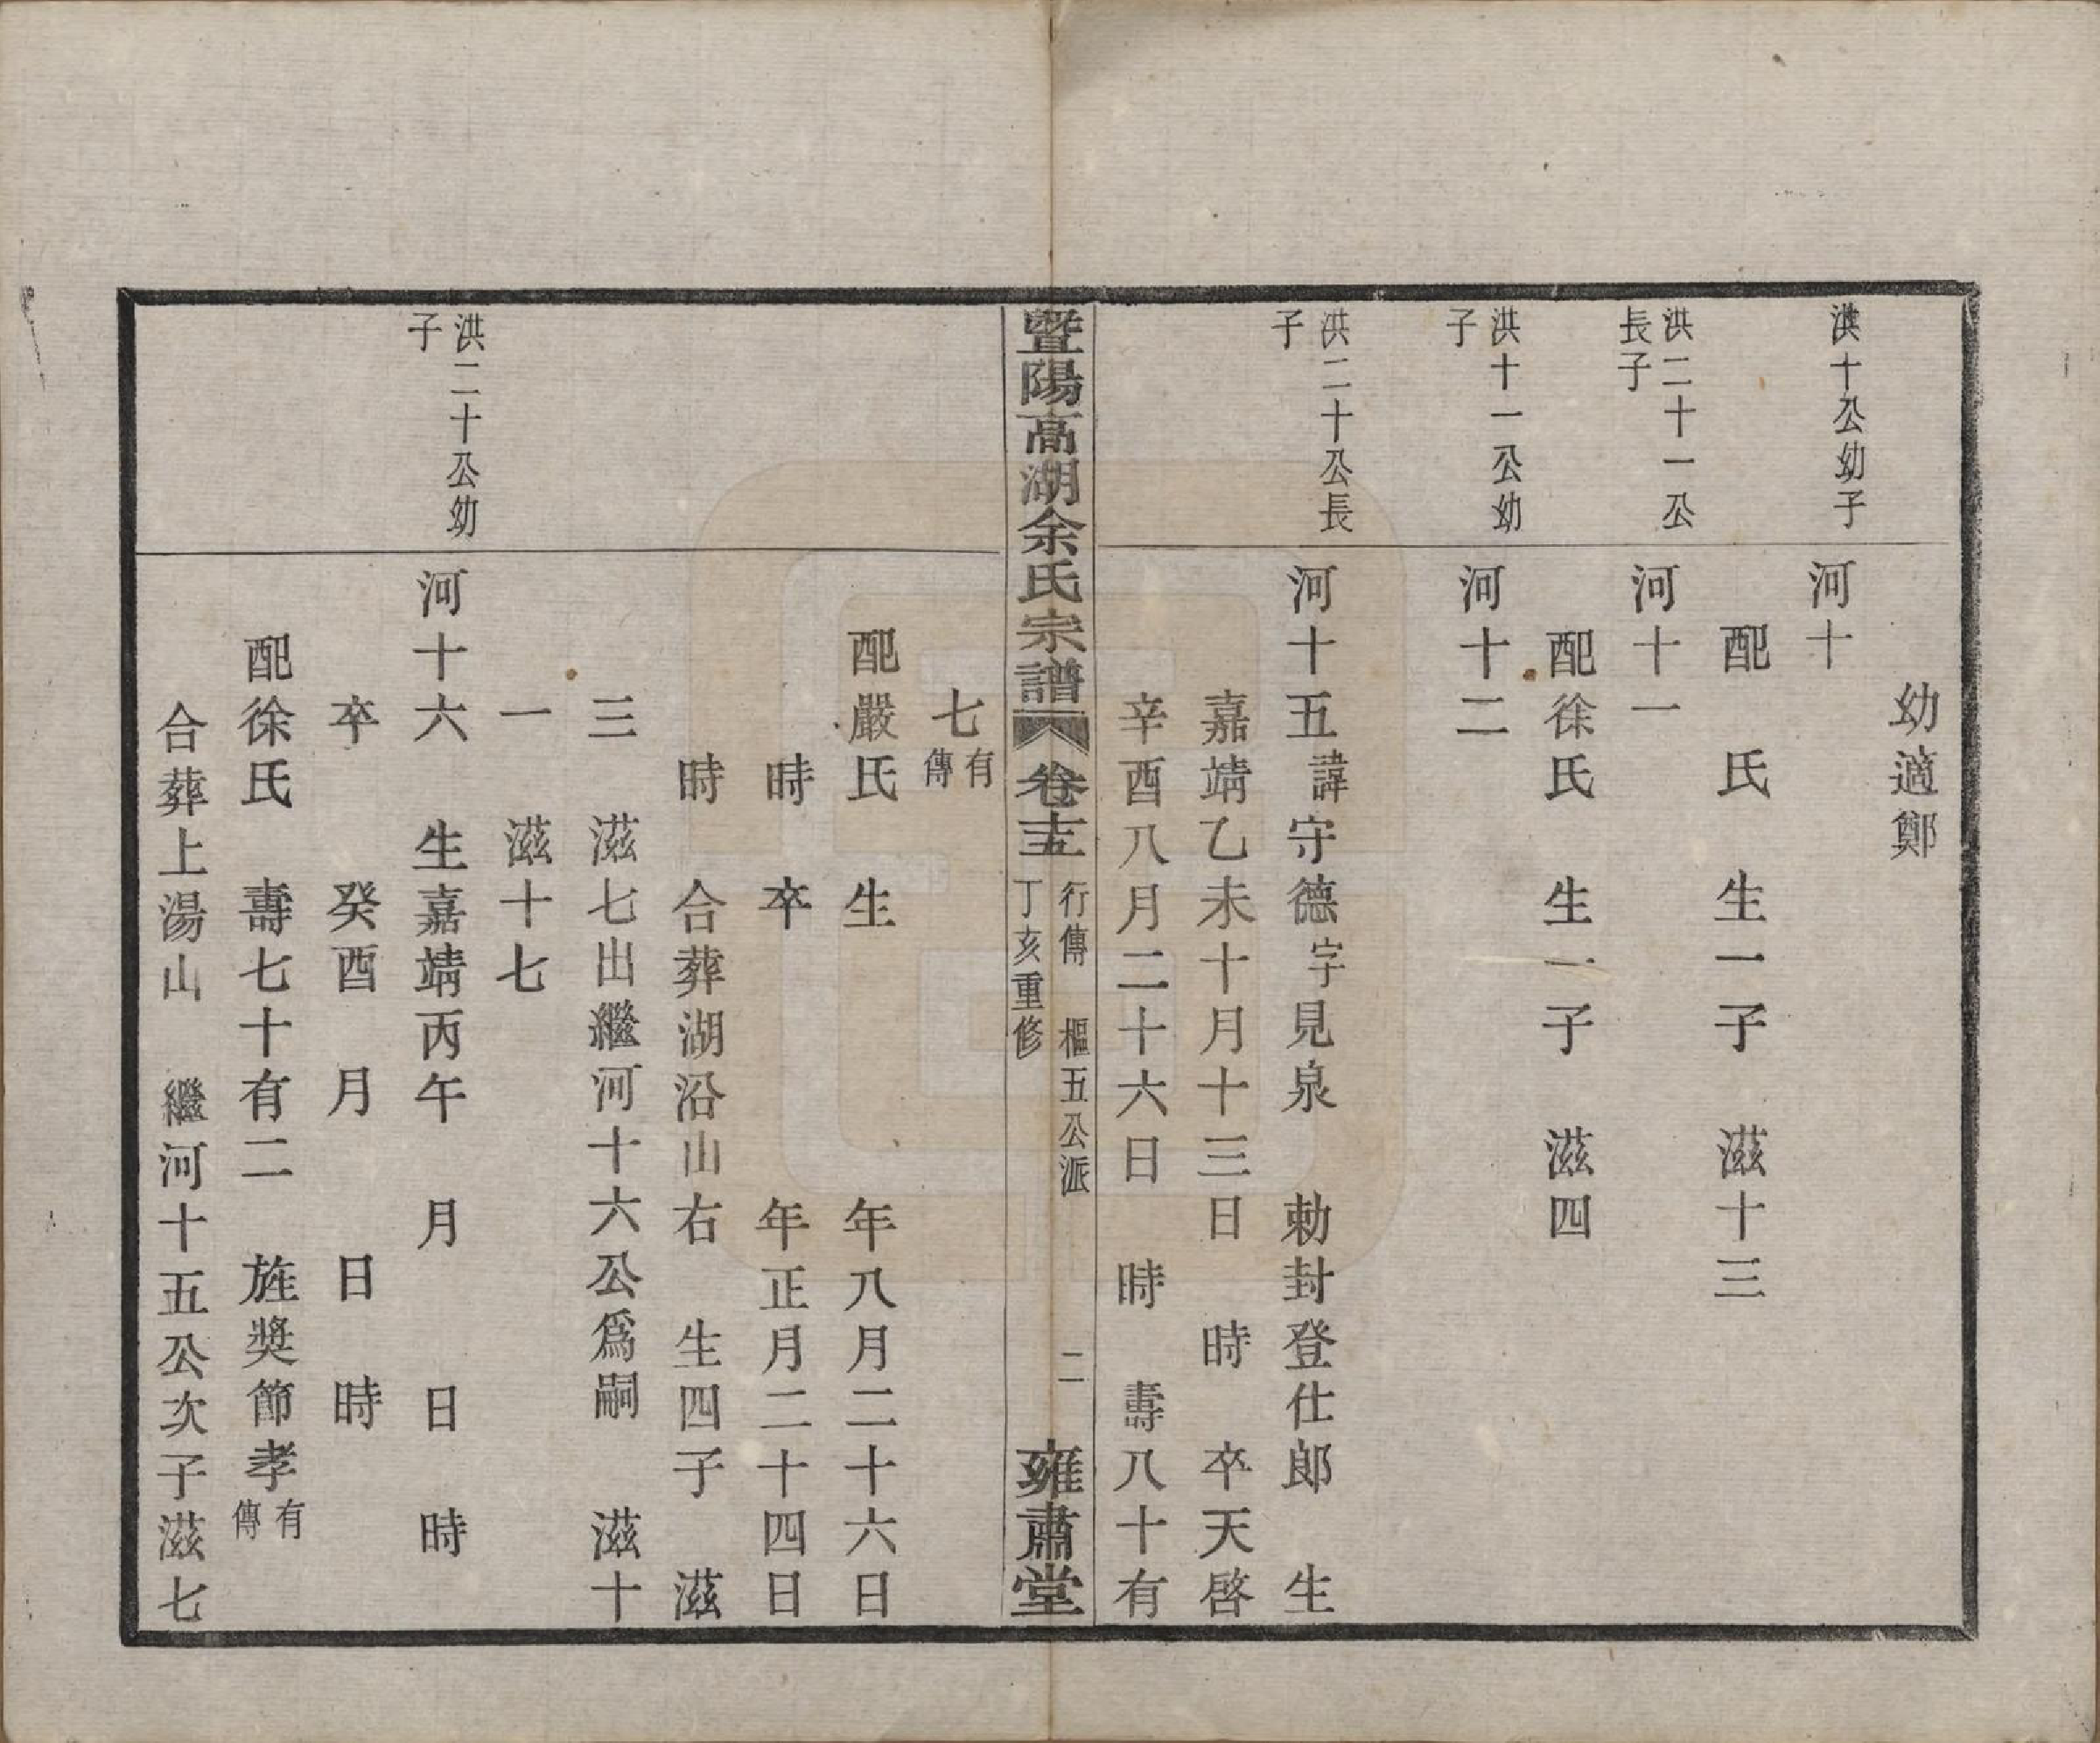 幼適鄭
洪十公幼子
河十
配　氏　生一子　滋十三
洪二十一公
長子
河十一
配徐氏　生一子　滋四
洪十一公幼
子
河十二
洪二十公長
子
河十五諱守德字見泉　勅封登仕郎　生
嘉靖乙未十月十三日　時　卒天啓
辛酉八月二十六日　時　壽八十有
暨陽高湖余氏宗譜　卷十五　行傳　樞五公派　丁亥重修　二　雍肅堂
七有傳
配嚴氏　生　年八月二十六日
時　卒　年正月二十四日
時　合葬湖沿山右　生四子　滋
三　滋七出繼河十六公爲嗣　滋十
一　滋十七
洪二十公幼
子
河十六　生嘉靖丙午　月　日　時
卒　癸酉　月　日　時
配徐氏　壽七十有二　旌獎節孝有傳
合葬上湯山　繼河十五公次子滋七